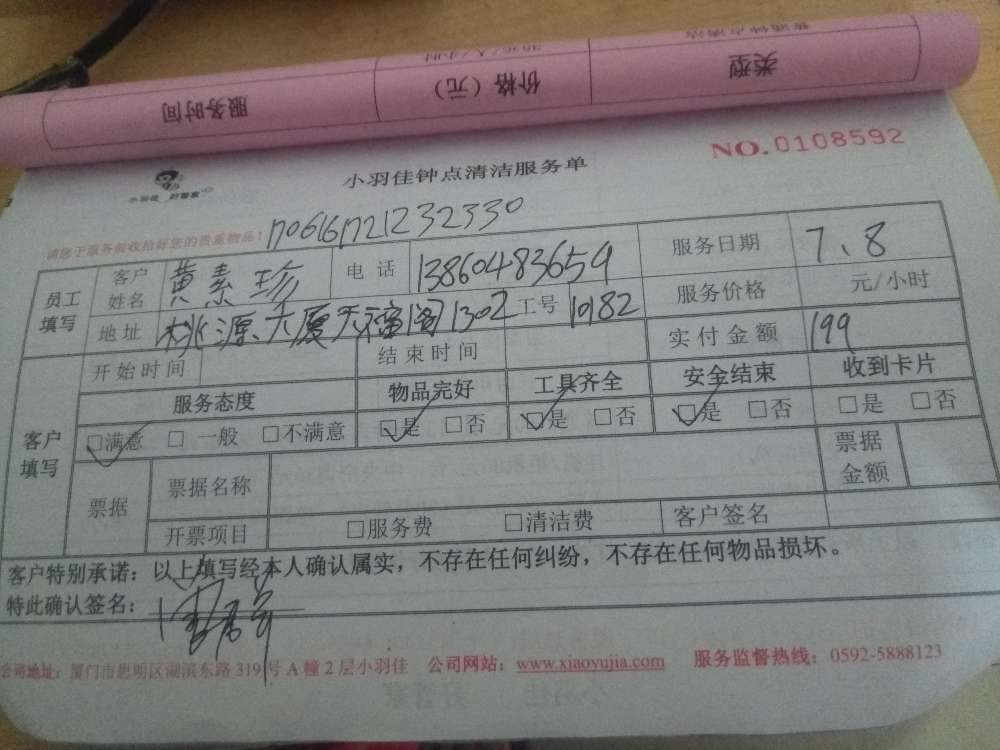 普通钟点清洁
30元/人/小时
类型
价格（元）
服务时间
NO.0108592
小羽佳 好管家
小羽佳钟点清洁服务单
请您于服务前收拾好您的贵重物品！
员工填写 客户姓名 黄素珍 电话 13860483659 服务日期 7、8
地址 桃源大厦天福阁1302 工号 10182 服务价格 元/小时
开始时间 结束时间 实付金额 199
客户填写 服务态度 物品完好 工具齐全 安全结束 收到卡片
□满意 □一般 □不满意 □是 □否 □是 □否 □是 □否 □是 □否
票据 票据名称 票据金额
开票项目 □服务费 □清洁费 客户签名
客户特别承诺：以上填写经本人确认属实，不存在任何纠纷，不存在任何物品损坏。
特此确认签名：
公司地址：厦门市思明区湖滨东路319号A幢2层小羽佳 公司网站：www.xiaoyujia.com 服务监督热线：0592-5888123